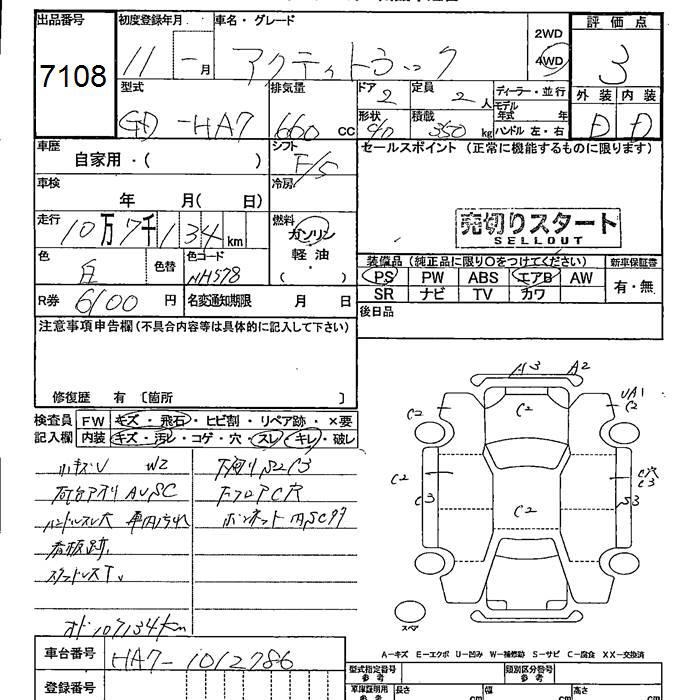 出品番号 初度登録年月 車名・グレード 評価点
7108 11 - 月 アクティトラック 2WD 4WD 3
型式 排気量 ドア 2 定員 2 人 ディーラー・並行 外装 内装
GD-HA7 660 cc 形状 積載 350 kg モデル年式 年 ハンドル 左・右 D D
車歴 自家用・( ) シフト F/5 セールスポイント(正常に機能するものに限ります)
車検 年 月( 日) 冷房
走行 10万7千134km 燃料 ガソリン・軽油・( ) 売切りスタート
SELLOUT
色 白 色替 色コード NH578 装備品(純正品に限り○をつけてください) 新車保証書
PS PW ABS エアB AW 有・無
R券 6100 円 名変通知期限 月 日 SR ナビ TV カワ
注意事項申告欄(不具合内容等は具体的に記入して下さい) 後日品
修復歴 有 〔箇所 〕
検査員 FW キズ・飛石・ヒビ割・リペア跡・×要
記入欄 内装 キズ・汚レ・コゲ・穴・スレ・キレ・破レ
小キズU W2 下廻りS2C3
荷台アオリ AUSC FフロアC穴
ハンドルスレ大 車内汚れ ボンネット内SC
看板跡
オド107134km
A3 A2
C2 C2 UA1 C2
C2 C穴 C3
C3 C2 S3
スペア
A-キズ E-エクボ U-凹み W-補修跡 S-サビ C-腐食 XX-交換済
車台番号 HA7-1012786
登録番号 型式指定番号 参考 類別区分番号 参考
車庫証明用 参考 長さ cm 幅 cm 高さ cm